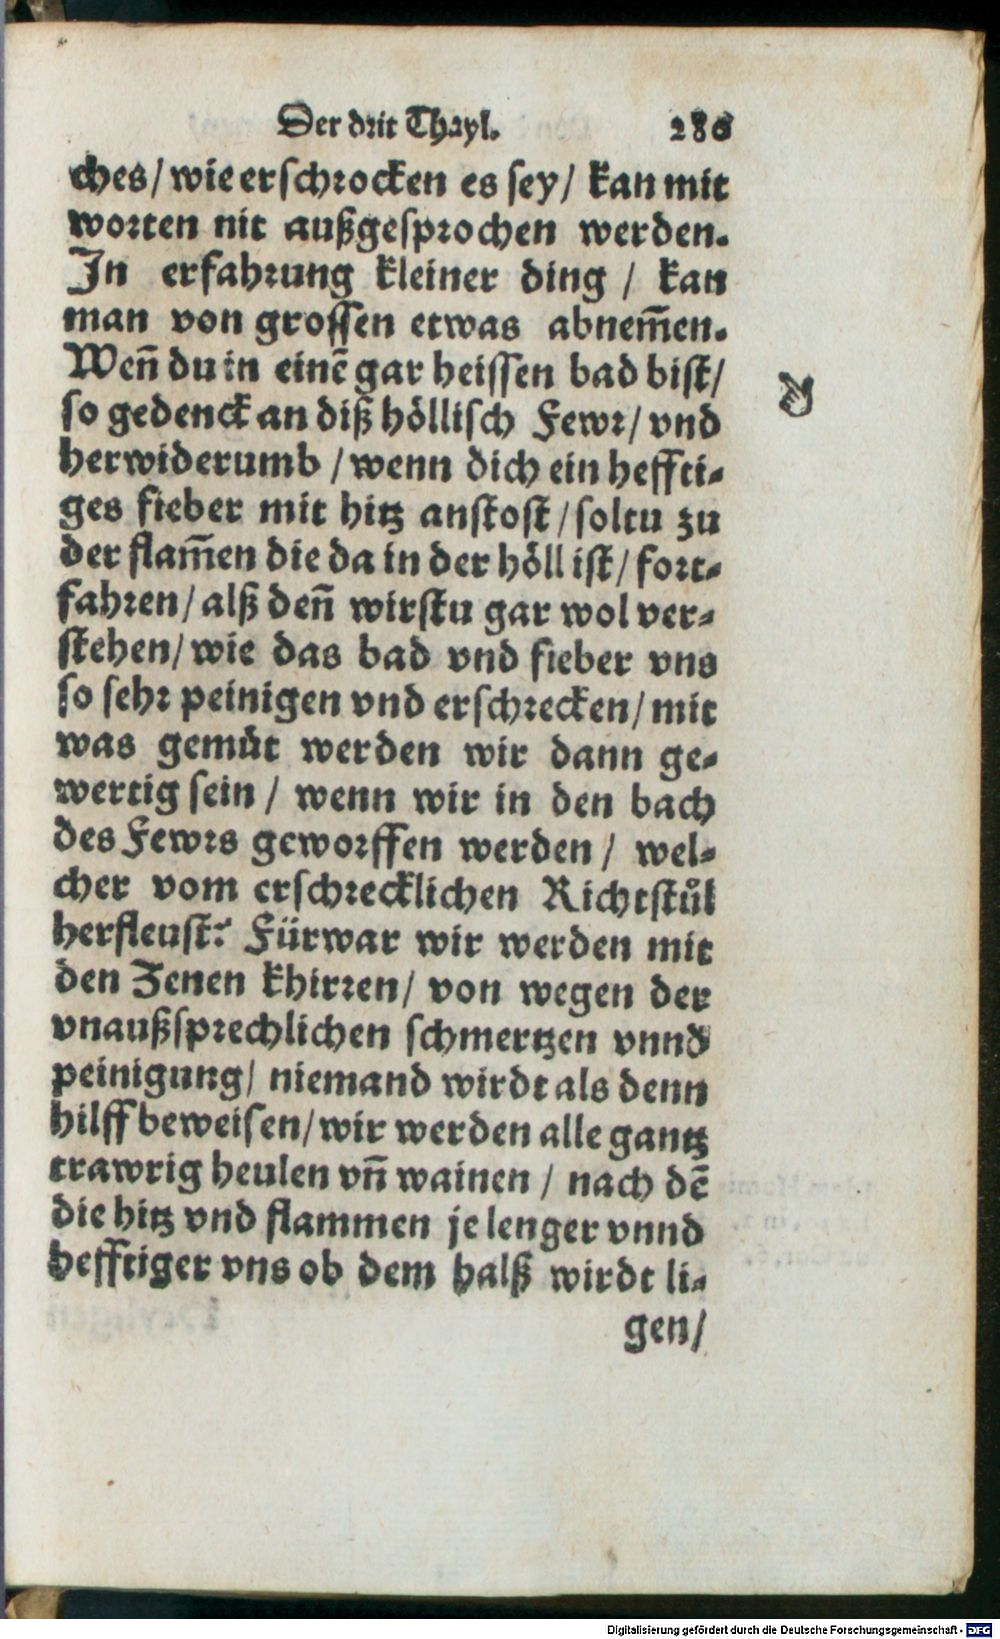 Der drit Thayl. 286
ches / wie erschrocken es sey / kan mit
worten nit außgesprochen werden.
In erfahrung kleiner ding / kan
man von grossen etwas abnem̃en.
Weñ du in einē gar heissen bad bist /
so gedenck an diß höllisch Fewr / vnd
herwiderumb / wenn dich ein heffti-
ges fieber mit hitz anstost / soltu zu
der flam̃en die da in der höll ist / fort-
fahren / alß deñ wirstu gar wol ver-
stehen / wie das bad vnd fieber vns
so sehr peinigen vnd erschrecken / mit
was gemüt werden wir dann ge-
wertig sein / wenn wir in den bach
des Fewrs geworffen werden / wel-
cher vom erschrecklichen Richtstůl
herfleust? Fürwar wir werden mit
den Zenen khirren / von wegen der
vnaußsprechlichen schmertzen vnnd
peinigung / niemand wirdt als denn
hilff beweisen / wir werden alle gantz
trawrig heulen vñ wainen / nach dē
die hitz vnd flammen je lenger vnnd
hefftiger vns ob dem halß wirdt li-
gen /
Digitalisierung gefördert durch die Deutsche Forschungsgemeinschaft - DFG